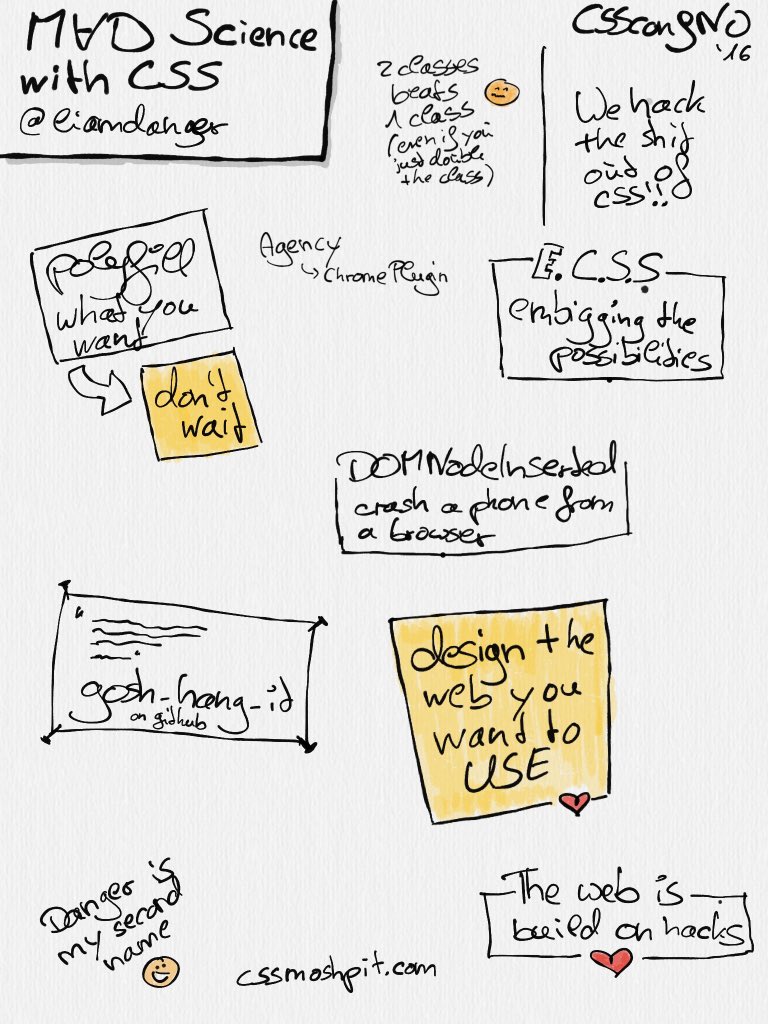 MAD Science
with CSS
@liamdanger
2 classes
beats
1 class
(even if you
just double
the class)
CSSconfNO
'16
We hack
the shit
out of
CSS!!
polyfill
what you
want
don't
wait
Agency
↳ Chrome Plugin
E.C.S.S
embigging the
possibilities
DOMNodeInserted
crash a phone from
a browser
"
gosh-hang-it
on github
design the
web you
want to
USE
Danger is
my second
name
cssmoshpit.com
The web is
build on hacks